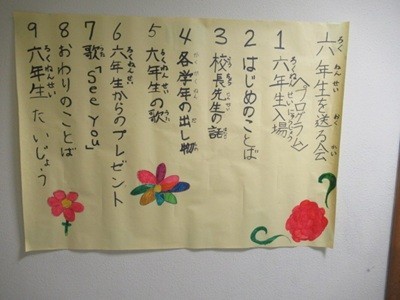 六年生を送る会
〈プログラム〉
1 六年生入場
2 はじめのことば
3 校長先生の話
4 各学年の出し物
5 六年生の歌
6 六年生からのプレゼント
7 歌「See You」
8 おわりのことば
9 六年生 たいじょう